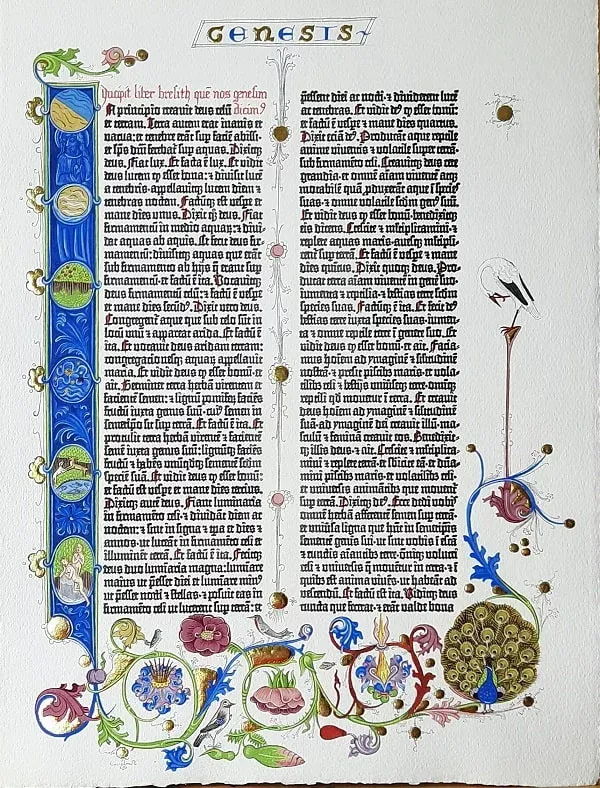 GENESIS
Incipit liber bresith quē nos genesim
A principio creavit deus celū dicim⁹
et terram. Terra autem erat inanis et
vacua: et tenebre erāt sup faciē abissi:
et spūs dñi ferebat̄ sup aquas. Dixitq;
deus. Fiat lux. Et facta ē lux. Et vidit
deus lucem q̄ esset bona: et divisit lucē
a tenebris. appellavitq; lucem diem et
tenebras noctem. Factūq; est vespe et
mane dies unus. Dixit q̄; deus. Fiat
firmamentū in medio aquarū: et divi-
dat aquas ab aquis. Et fecit deus fir-
mamentū: divisitq; aquas que erāt
sub firmamento ab hijs q̄ erant sup
firmamentū: et factū ē ita. Vocavitq;
deus firmamentū celū: et factū ē vespe
et mane dies secūd⁹. Dixit vero deus.
Congregent̄ aque que sub celo sūt in
locū unū et appareat arida. Et factū ē
ita. Et vocavit deus aridam terram:
congregacionesq; aquarū appellavit
maria. Et vidit deus q̄ esset bonū. et
ait. Germinet terra herbā virentem et
facientem semen: et lignū pomiferū faciēs
fructū iuxta genus suū. cui⁹ semen in
semetipō sit sup terrā. Et factū ē ita. Et
protulit terra herbā virentē et facientē
semē iuxta genus suū: lignūq; faciēs
fructū et habēs unūqdq; sementē scdm
speciē suā. Et vidit deus q̄ esset bonū:
et factū est vespe et mane dies tercius.
Dixitq; autē deus. Fiant luminaria
in firmamēto celi. et dividāt diem ac
noctem: et sint in signa et tp̄a et dies et
annos. ut luceāt in firmamēto celi et
illuminēt terrā. Et factū ē ita. Fecitq;
deus duo luminaria magna: lumiare
maius ut p̄esset diei et lumiare min⁹
ut p̄esset nocti et stellas. et posuit eas in
firmamēto celi ut lucerent sup terrā: et
p̄essent diei ac nocti: et dividerent lucē
ac tenebras. Et vidit de⁹ q̄ esset bonū:
et factū ē vespe et mane dies quartus.
Dixit eciā de⁹. Producāt aque reptile
anime viventis et volatile super terrā:
sub firmamēto celi. Creavitq; deus cete
grandia. et omnē aīam viventē atq;
motabilē quā pduxerāt aque ī species
suas. et omne volatile scdm gen⁹ suū.
Et vidit deus q̄ esset bonū. benedixitq;
eis dicens. Crescite et mltiplicamini. et
replete aquas maris. avesq; mltiplicē-
tur sup terrā. Et factū ē vespe et mane
dies quintus. Dixit quoq; deus. Pro-
ducat terra aīam viventē in gene̅ suo:
iumenta et reptilia. et bestias terre scdm
species suas. Factūq; ē ita. Et fecit de⁹
bestias terre iuxta species suas: iumen-
ta et omne reptile terre ī genere suo. Et
vidit deus q̄ esset bonū. et ait. Facia-
mus hoīem ad ymaginē et silitudinē
nostrā. et p̄sit piscibs maris. et vola-
tilibs celi et bestijs universeq; terre. omniq;
reptili qd movetur ī terra. Et creavit
deus hoīem ad ymaginē et silitudinē
suā: ad ymaginē dei creavit illū. ma-
sculū et feminā creavit eos. Benedixitq;
illis deus. et ait. Crescite et mltiplica-
mini et replete terrā. et sbicite eā: et dūa-
mini piscibs maris. et volatilibs celi.
et universis animātibs que movent̄
sup terrā. Dixitq; de⁹. Ecce dedi vobis
omnē herbā afferentē semen sup terrā.
et universa ligna que hñt in semetipis
sementē genis sui. ut sint vobis ī escā
et cunctis aīantibs terre. omniq; volucri
celi et universis q̄ moventur in terra. et ī
quibs est anima vivēs. ut habeāt ad
vescendū. Et factū est ita. Viditq; deus
cuncta que fecerat. et erāt valde bona